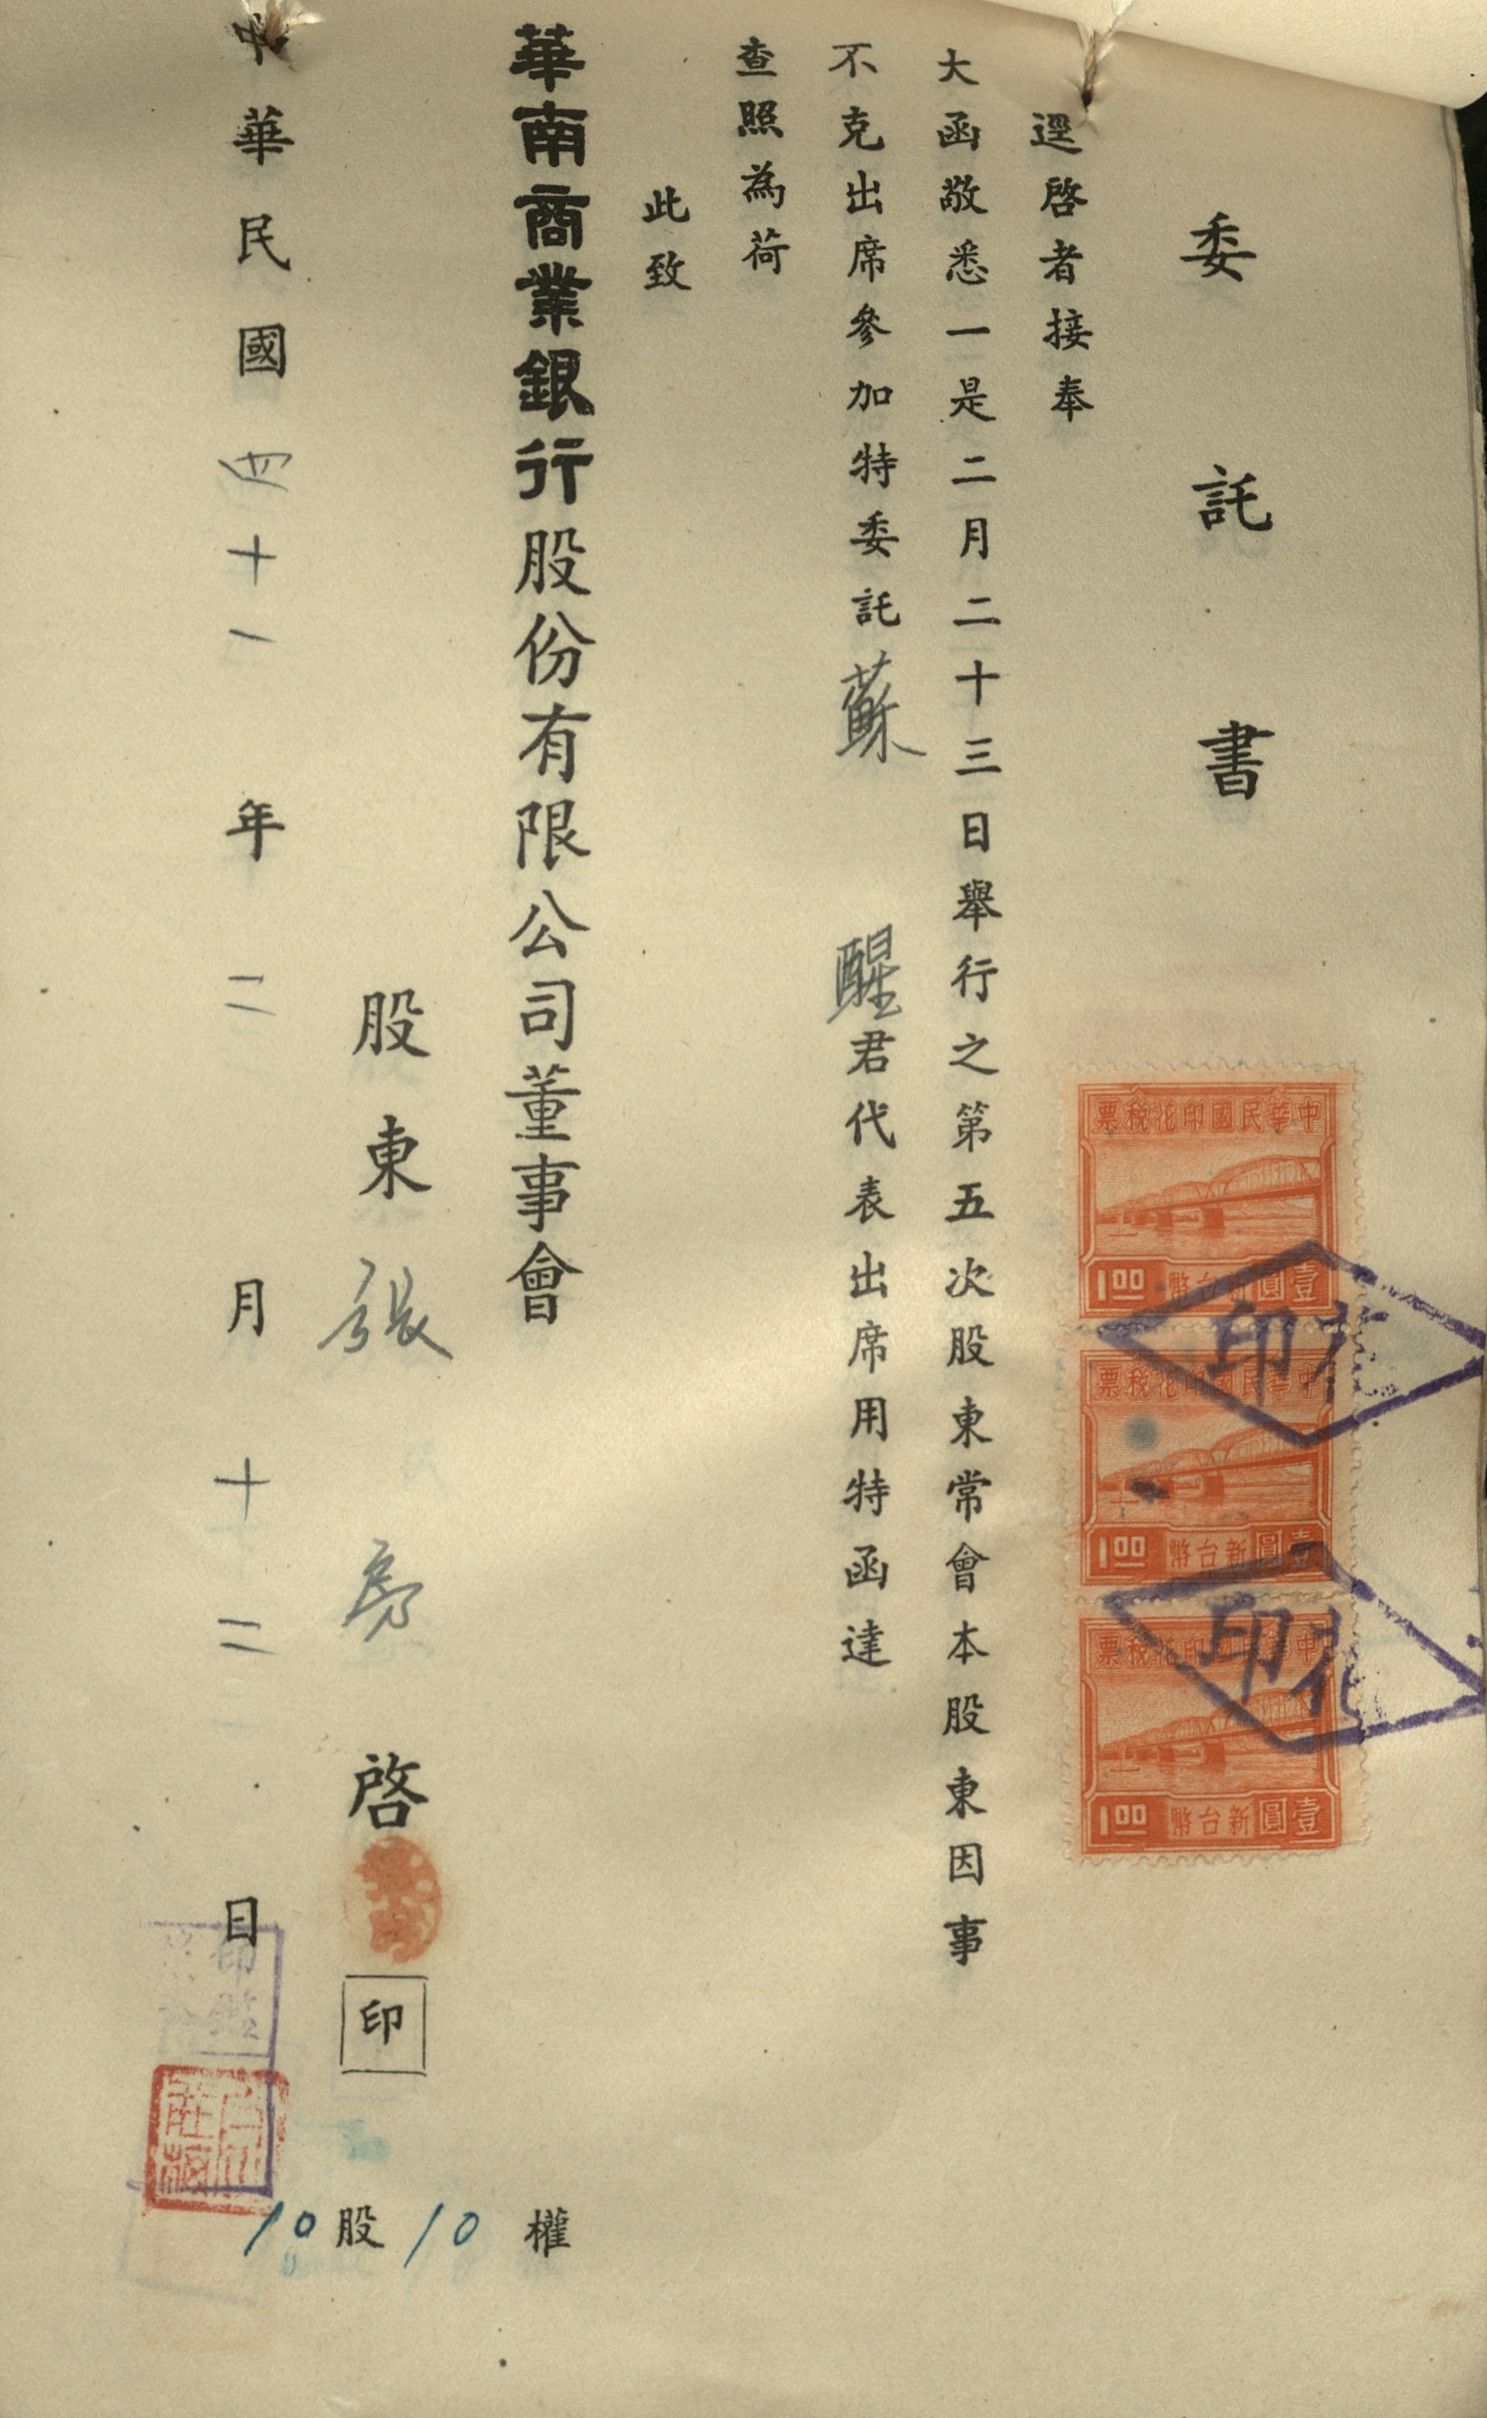 委託書
逕啓者接奉
大函敬悉一是二月二十三日舉行之第五次股東常會本股東因事
不克出席參加特委託蘇醒君代表出席用特函達
查照為荷
此致
華南商業銀行股份有限公司董事會
股東張 啓
印
中華民國四十一年二月十二日
10股10權
中華民國印花稅票
1.00 新台幣壹圓
中華民國印花稅票
1.00 新台幣壹圓
中華民國印花稅票
1.00 新台幣壹圓
印花
印花
印鑑